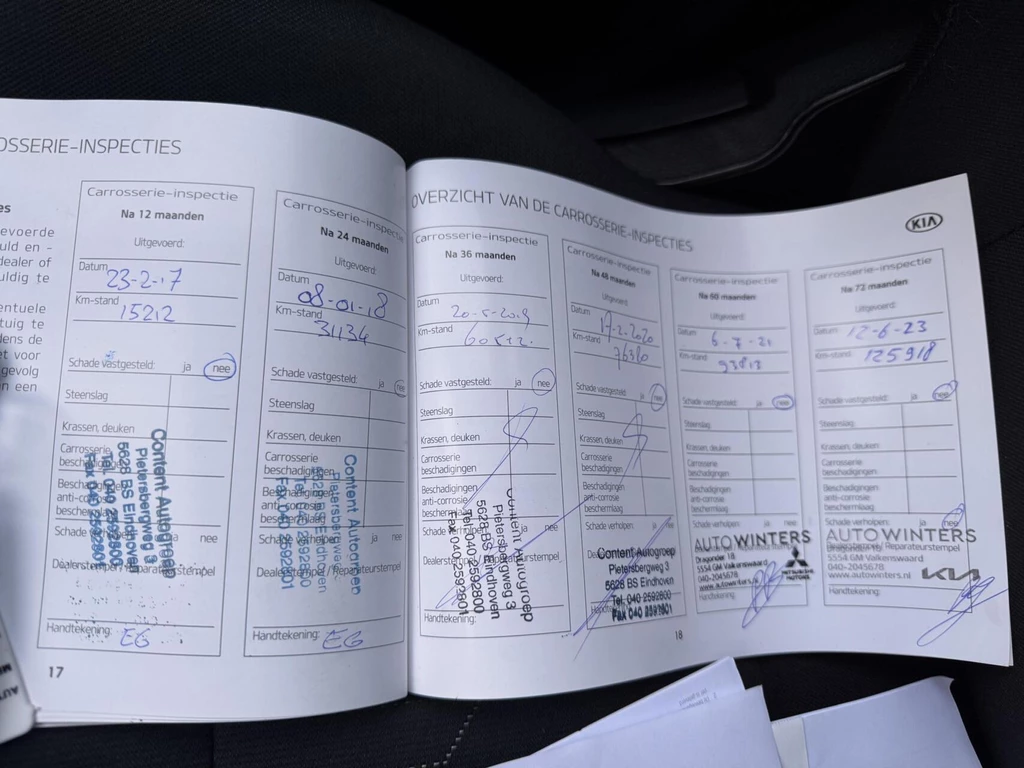 OSSERIE-INSPECTIES
es
gevoerde
uld en -
dealer of
uldig te
entuele
tuig te
dens de
et voor
gevolg
en een
Carrosserie-inspectie
Na 12 maanden
Uitgevoerd:
Datum 23-2-17
Km-stand 15212
Schade vastgesteld: ja nee
Steenslag
Krassen, deuken
Carrosserie
beschadigingen
Beschadigingen
anti-corrosie
beschermlaag
Schade verholpen: ja nee
Dealerstempel / Reparateurstempel
Content Autogroep
Pietersbergweg 3
5628 BS Eindhoven
Tel. 040 2592800
Fax 040 2592801
Handtekening: EG
17
Carrosserie-inspectie
Na 24 maanden
Uitgevoerd:
Datum 08-01-18
Km-stand 31134
Schade vastgesteld: ja nee
Steenslag
Krassen, deuken
Carrosserie
beschadigingen
Beschadigingen
anti-corrosie
beschermlaag
Schade verholpen: ja nee
Dealerstempel / Reparateurstempel
Content Autogroep
Pietersbergweg
5628 BS Eindhoven
Tel. 040 2592800
Fax 040 2592801
Handtekening: EG
OVERZICHT VAN DE CARROSSERIE-INSPECTIES
KIA
Carrosserie-inspectie
Na 36 maanden
Uitgevoerd:
Datum 20-5-2019
Km-stand 60512
Schade vastgesteld: ja nee
Steenslag
Krassen, deuken
Carrosserie
beschadigingen
Beschadigingen
anti-corrosie
beschermlaag
Schade verholpen: ja nee
Dealerstempel / Reparateurstempel
Content Autogroep
Pietersbergweg 3
5628 BS Eindhoven
Tel. 040 2592800
Fax 040 2592801
Handtekening:
Carrosserie-inspectie
Na 48 maanden
Uitgevoerd:
Datum 17-2-2020
Km-stand 76310
Schade vastgesteld: ja nee
Steenslag
Krassen, deuken
Carrosserie
beschadigingen
Beschadigingen
anti-corrosie
beschermlaag
Schade verholpen: ja nee
Content Autogroep
Pietersbergweg 3
5628 BS Eindhoven
Tel. 040 2592800
Fax 040 2592801
18
Carrosserie-inspectie
Na 60 maanden
Uitgevoerd:
Datum 6-7-21
Km-stand 93813
Schade vastgesteld: ja nee
Steenslag
Krassen, deuken
Carrosserie
beschadigingen
Beschadigingen
anti-corrosie
beschermlaag
Schade verholpen: ja nee
AUTOWINTERS
Dragonder 18
5554 GM Valkenswaard
040-2045678
www.autowinters.nl
MITSUBISHI
MOTORS
Handtekening:
Carrosserie-inspectie
Na 72 maanden
Uitgevoerd:
Datum 12-6-23
Km-stand 125918
Schade vastgesteld: ja nee
Steenslag
Krassen, deuken:
Carrosserie
beschadigingen
Beschadigingen
anti-corrosie
beschermlaag
Schade verholpen: ja nee
AUTOWINTERS
Dragonder 18
Reparateurstempel
5554 GM Valkenswaard
040-2045678
www.autowinters.nl
KIA
Handtekening: